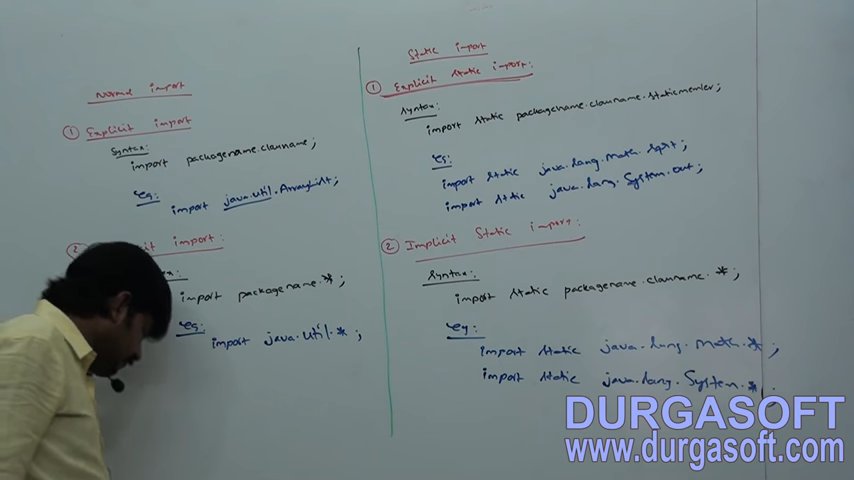 Normal import
① Explicit import
Syntax:
import packagename.classname;
eg:
import java.util.ArrayList;
②
it import:
x:
import packagename.*;
eg:
import java.util.*;
Static import
① Explicit static import:
Syntax:
import static packagename.classname.staticmember;
eg:
import static java.lang.Math.sqrt;
import static java.lang.System.out;
② Implicit Static import:
Syntax:
import static packagename.classname.*;
eg:
import static java.lang.Math.*;
import static java.lang.System.*;
DURGASOFT
www.durgasoft.com